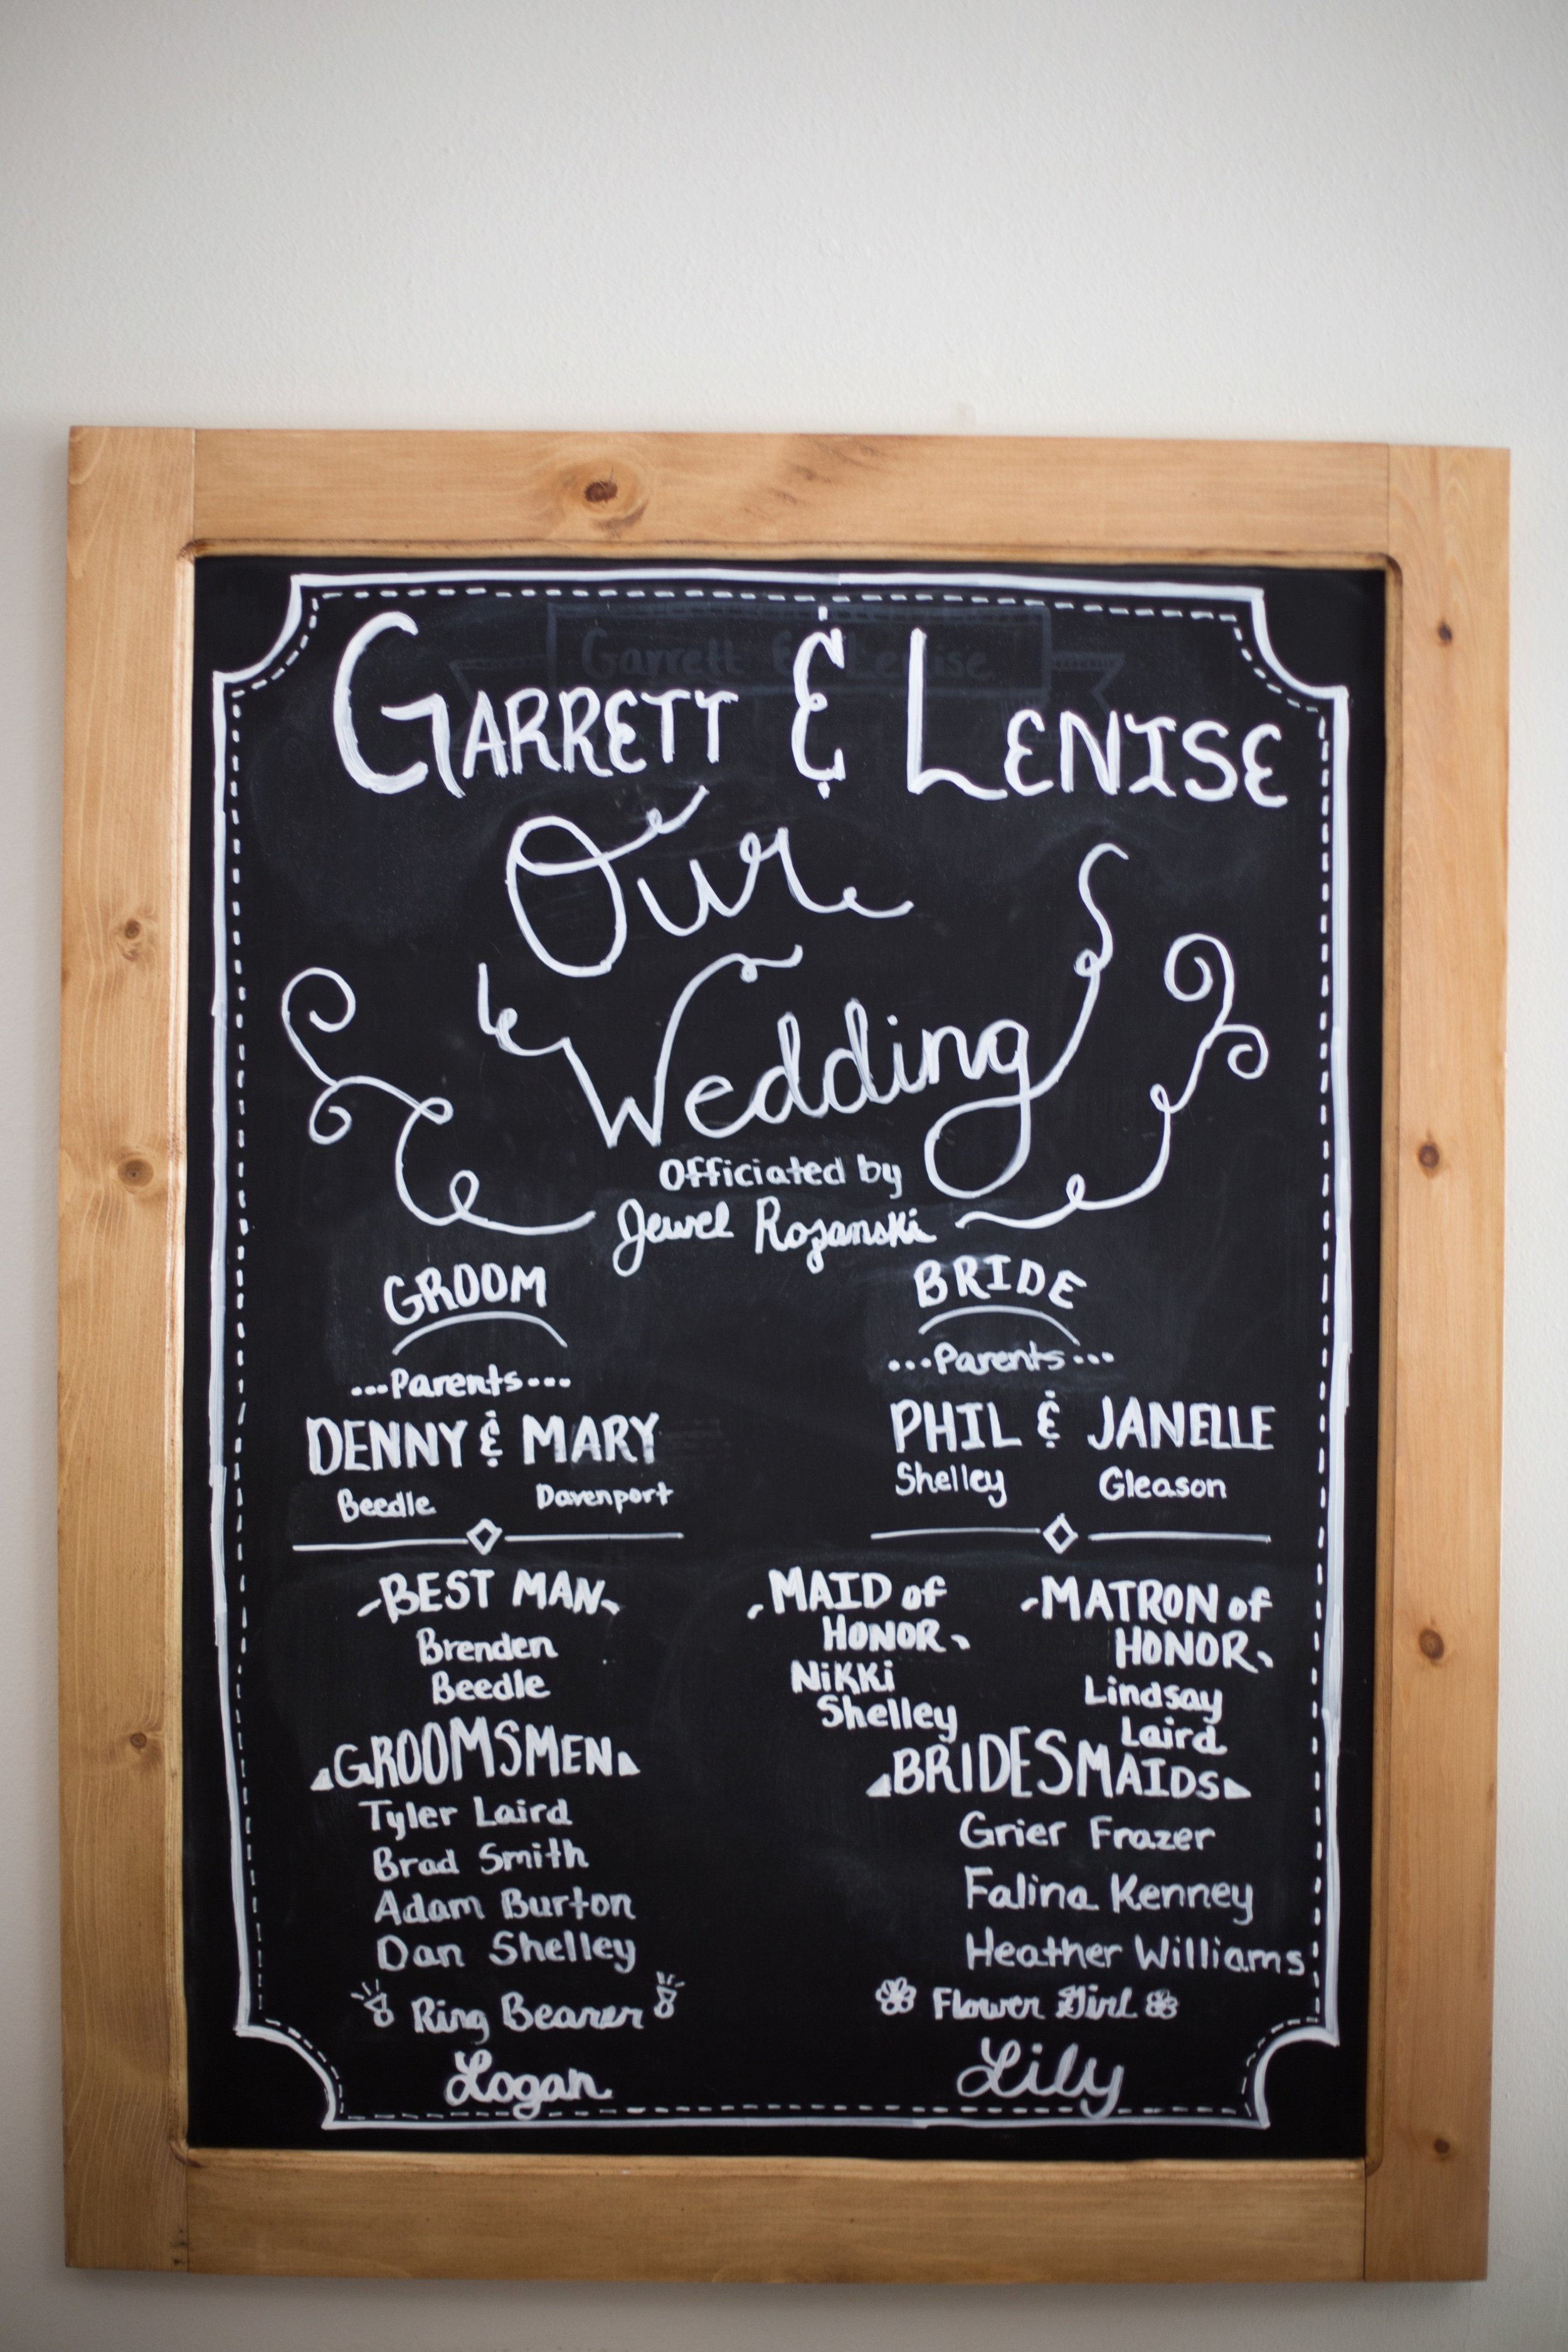 Garrett & Lenise
GARRETT & LENISE
Our
Wedding
Officiated by
Jewel Rozanski
GROOM
...Parents...
DENNY & MARY
Beedle Davenport
BEST MAN
Brenden
Beedle
GROOMSMEN
Tyler Laird
Brad Smith
Adam Burton
Dan Shelley
Ring Bearer
Logan
BRIDE
...Parents...
PHIL & JANELLE
Shelley Gleason
MAID of
HONOR
Nikki
Shelley
MATRON of
HONOR
Lindsay
Laird
BRIDESMAIDS
Grier Frazer
Falina Kenney
Heather Williams
Flower Girl
Lily